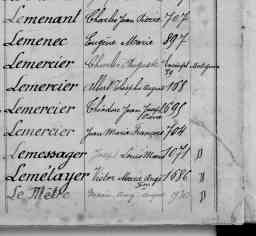 Lemenant Charles Jean Pierre 707
Lemenec Eugène Marie 897
Lemercier Charles Auguste
Lemercier Albert Joseph August 188
Lemercier Théodore Jean Joseph 695
Pierre
Lemercier Jean Marie François 704
Lemessager Joseph Louis Marie 1071 B
Lemélayer Victor Marie Ange 1686 B
Le Mètre Marie Ange August